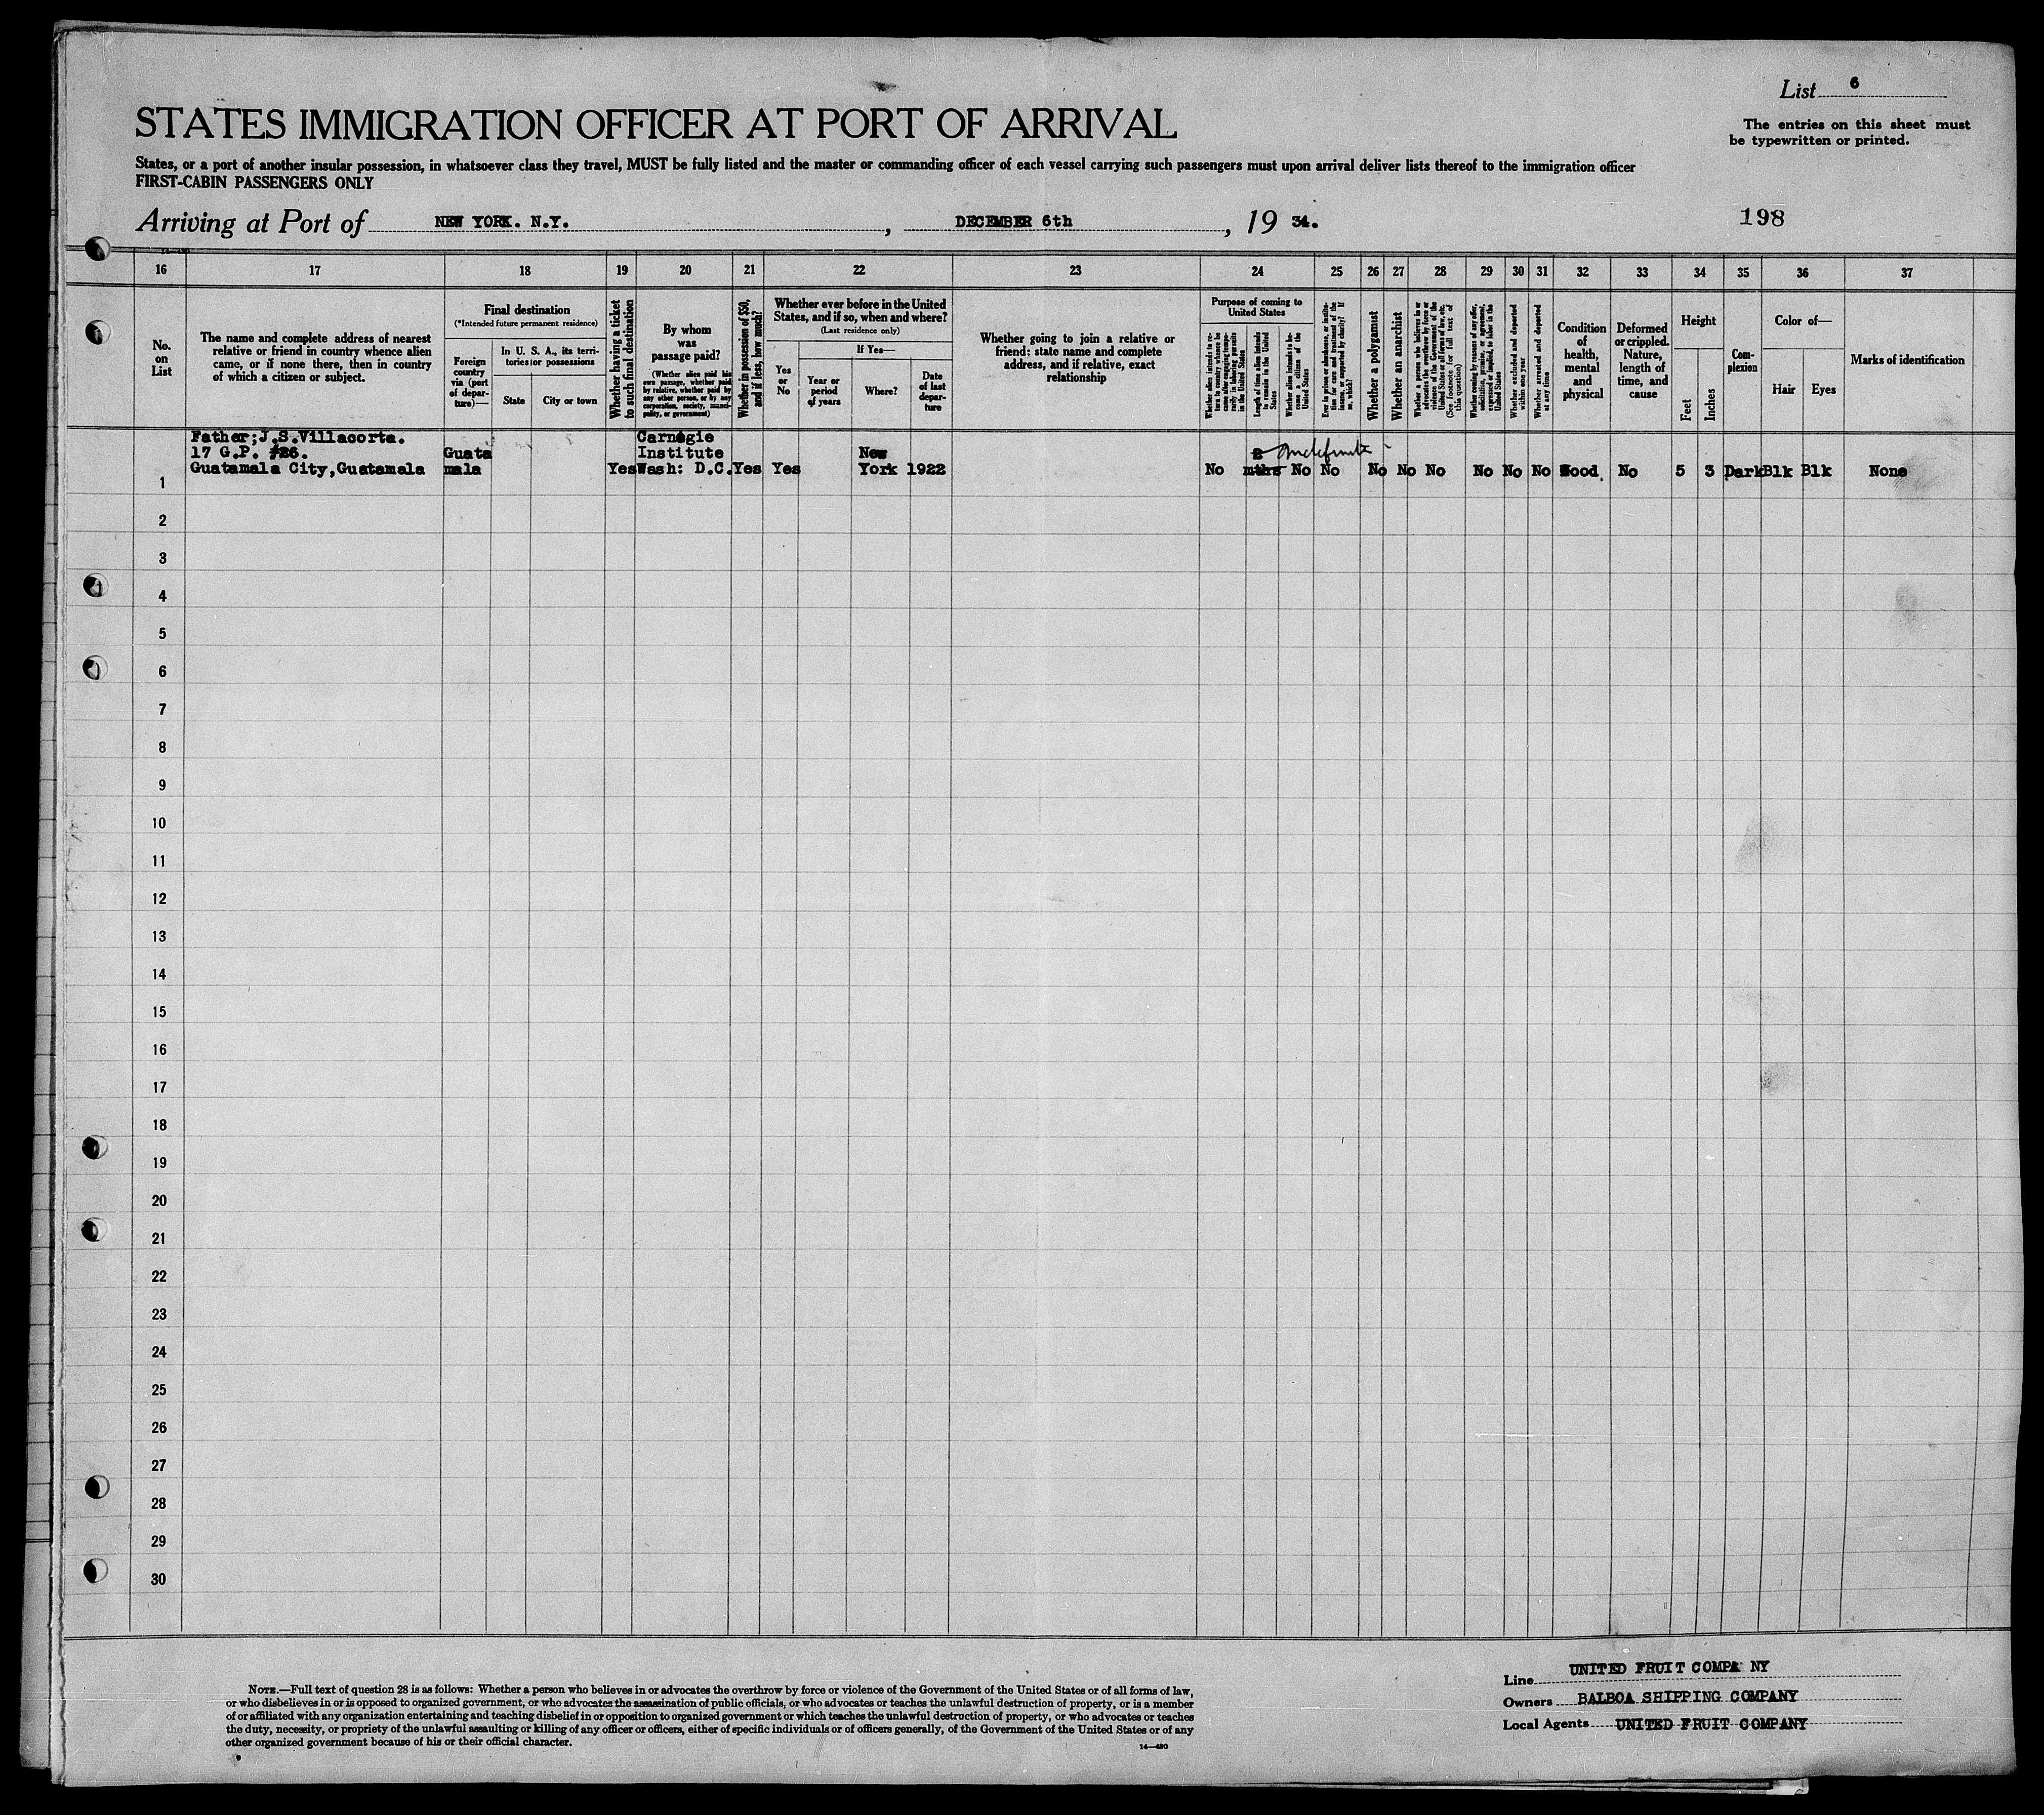 List 6
STATES IMMIGRATION OFFICER AT PORT OF ARRIVAL
The entries on this sheet must
be typewritten or printed.
States, or a port of another insular possession, in whatsoever class they travel, MUST be fully listed and the master or commanding officer of each vessel carrying such passengers must upon arrival deliver lists thereof to the immigration officer
FIRST-CABIN PASSENGERS ONLY
Arriving at Port of NEW YORK. N.Y. , DECEMBER 6th , 19 34.
198
16 17 18 19 20 21 22 23 24 25 26 27 28 29 30 31 32 33 34 35 36 37
No.
on
List
The name and complete address of nearest
relative or friend in country whence alien
came, or if none there, then in country
of which a citizen or subject.
Final destination
(*Intended future permanent residence)
Foreign
country
via (port
of depar-
ture)—
In U. S. A., its terri-
tories or possessions
State
City or town
Whether having a ticket
to such final destination
By whom
was
passage paid?
(Whether alien paid his
own passage, whether paid
by relative, whether paid by
any other person, or by any
corporation, society, munici-
pality, or government)
Whether in possession of $50,
and if less, how much?
Whether ever before in the United
States, and if so, when and where?
(Last residence only)
Yes
or
No
If Yes—
Year or
period
of years
Where?
Date
of last
depar-
ture
Whether going to join a relative or
friend; state name and complete
address, and if relative, exact
relationship
Purpose of coming to
United States
Whether alien intends to re-
turn to country whence he
came after engaging tempo-
rarily in laboring pursuits
in the United States
Length of time alien intends
to remain in the United
States
Whether alien intends to be-
come a citizen of the
United States
Ever in prison or almshouse, or institu-
tion for care and treatment of the
insane, or supported by charity? If
so, which?
Whether a polygamist
Whether an anarchist
Whether a person who believes in or
advocates the overthrow by force or
violence of the Government of the
United States or all forms of law, etc.
(See footnote for full text of
this question)
Whether coming by reason of any offer,
solicitation, promise, or agreement,
expressed or implied, to labor in the
United States
Whether excluded and deported
within one year
Whether arrested and deported
at any time
Condition
of
health,
mental
and
physical
Deformed
or crippled.
Nature,
length of
time, and
cause
Height
Feet
Inches
Com-
plexion
Color of—
Hair
Eyes
Marks of identification
Father;J.S.Villacorta. Carnegie
17 G.P. #26. Guata Institute New 2 Indefinite
Guatamala City,Guatamala mala Yes Wash: D.C. Yes Yes York 1922 No mths No No No No No No No No Good No 5 3 Dark Blk Blk None
1
2
3
4
5
6
7
8
9
10
11
12
13
14
15
16
17
18
19
20
21
22
23
24
25
26
27
28
29
30
NOTE.—Full text of question 28 is as follows: Whether a person who believes in or advocates the overthrow by force or violence of the Government of the United States or of all forms of law,
or who disbelieves in or is opposed to organized government, or who advocates the assassination of public officials, or who advocates or teaches the unlawful destruction of property, or is a member
of or affiliated with any organization entertaining and teaching disbelief in or opposition to organized government or which teaches the unlawful destruction of property, or who advocates or teaches
the duty, necessity, or propriety of the unlawful assaulting or killing of any officer or officers, either of specific individuals or of officers generally, of the Government of the United States or of any
other organized government because of his or their official character.
14—430
Line UNITED FRUIT COMPA NY
Owners BALBOA SHIPPING COMPANY
Local Agents UNITED FRUIT COMPANY